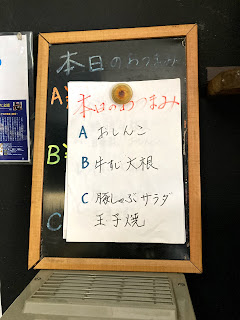 本日のおつまみ
A
B
C
本日のおつまみ
A おしんこ
B 牛すじ大根
C 豚しゃぶサラダ
玉子焼